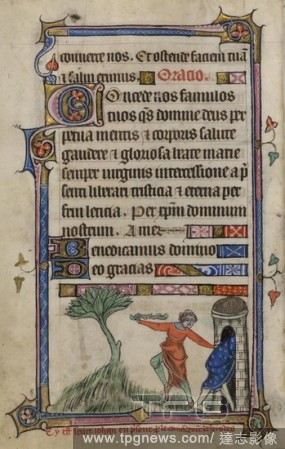 convere nos. Et ostende faciem tuā
& salvi erimus. Oracio.
Concede nos famulos
tuos q̄s domine deus per
petua mentis & corporis salute
gaudere & gloriosa beate marie
semper virginis intercessione a p̄
senti liberari tristicia & eterna per
frui leticia. Per xp̄m dominum
nostrum. Amen.
Benedicamus domino
Deo gracias
Cy est
TPG
www.tpgnews.com / 達志影像